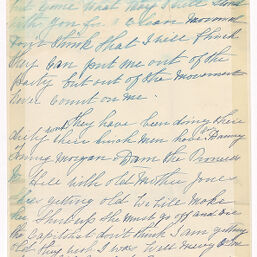 but come what may I will stand
with you for a clean movement
Don't think that I will flinch
They can put me out of the
party but not out of the movement
ever count on me.
they have been doing their
dirty work their hench men have
Tommy Morgan Dam the Pioneers
to Hell with old Mother Jones
Shes getting old We'll make
her Shut up She must go off and die
the Capitalist dont think I am getting
old they wish I was